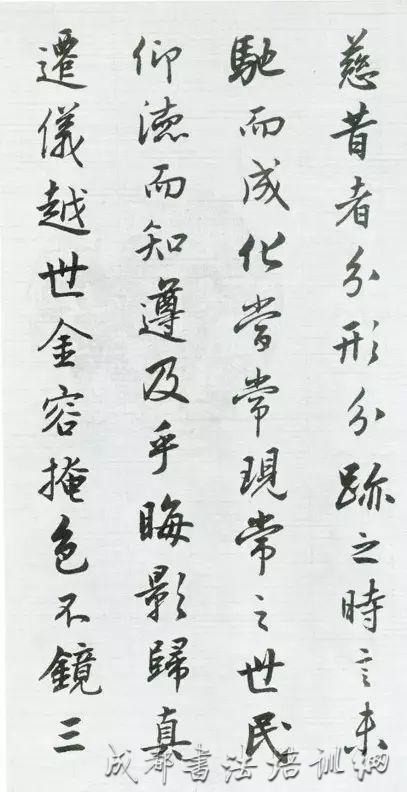 慈昔者分形分跡之時言未
馳而成化當常現常之世民
仰德而知遵及乎晦影歸真
遷儀越世金容掩色不鏡三
成都書法培训網